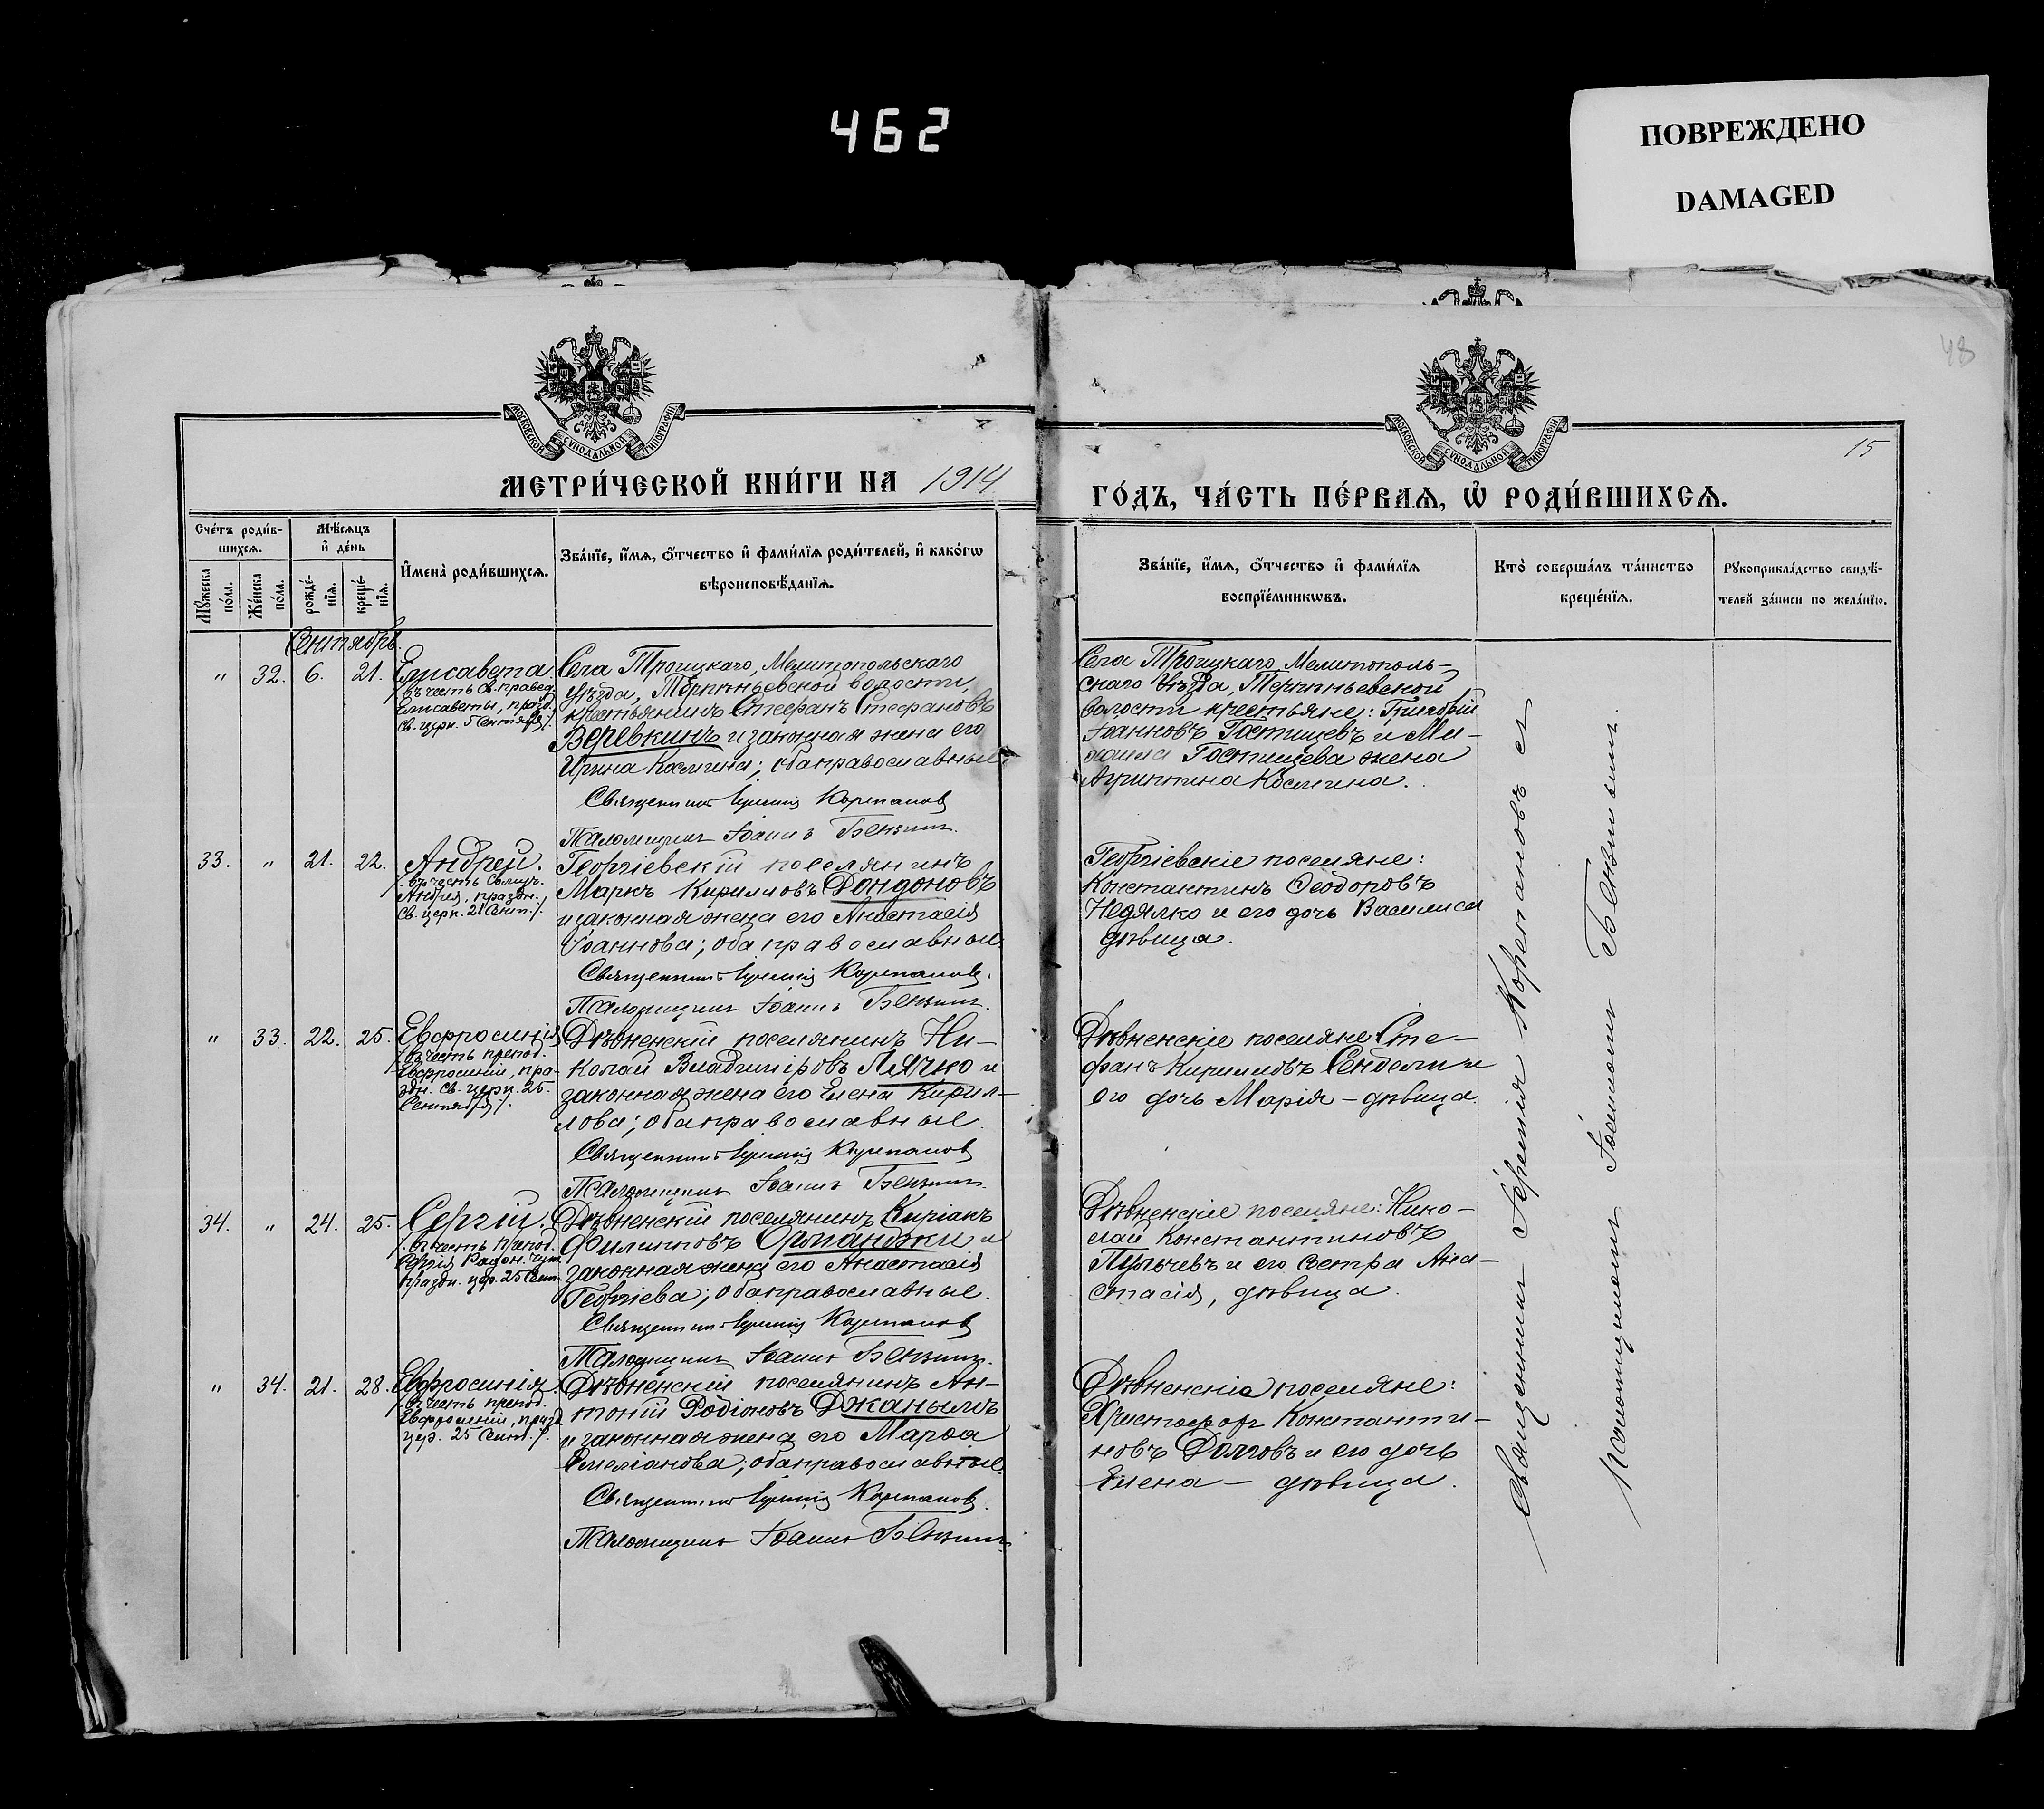 462
ПОВРЕЖДЕНО
DAMAGED
48
15
МОСКОВСКОЙ СѴНОДАЛЬНОЙ ТИПОГРАФІИ
МОСКОВСКОЙ СѴНОДАЛЬНОЙ ТИПОГРАФІИ
МЕТРИ́ЧЕСКОЙ КНИ́ГИ НА 1914
ГО́ДЪ, ЧА́СТЬ ПЕ́РВАЯ, Ѡ РОДИ́ВШИХСЯ.
Сче́тъ роди́в-
шихся.
Мꙋ́жеска
по́ла.
Же́нска
пола.
Мѣ́сяцъ
и҆ де́нь
рожде́-
нїя.
креще́-
нїя.
И҆мена̀ роди́вшихся.
Зва́нїе, и҆́мя, ѻ҆́тчество и҆ фами́лїя роди́телей, и҆ како́гѡ
вѣроисповѣ́данїя.
Зва́нїе, и҆́мя, ѻ҆́тчество и҆ фами́лїя
воспрїе́мникѡвъ.
Кто̀ соверша́лъ та́инство
креще́нїя.
Рꙋкоприкла́дство свидѣ́-
телей за́писи по жела́нїю.
Сентябрь.
" 32. 6. 21. Елисавета.
/въ честь Св. правед.
Елисаветы, празд.
Св. церк. 5 Сентября/.
Села Троицкаго, Мелитопольскаго
уѣзда, Терпѣньевской волости,
крестьянинъ Стефанъ Стефановъ
Веревкинъ и законная жена его
Ирина Космина; оба православные.
Священникъ Корепановъ
Псаломщикъ Іоаннъ Бензинъ.
Села Троицкаго, Мелитополь-
скаго уѣзда, Терпѣньевской
волости крестьяне: Григорій
Іоанновъ Гостищевъ и Ми-
хаила Гостищева жена
Агриппина Космина.
33. " 21. 22. Андрей.
/въ честь Св. муч.
Андрея, праздн.
Св. церк. 21 Сент./.
Георгіевскій поселянинъ
Маркъ Кирилловъ Дондоновъ
и законная жена его Анастасія
Іоаннова; оба православные.
Священникъ Корепановъ.
Псаломщикъ Іоаннъ Бензинъ.
Георгіевскіе поселяне:
Константинъ Ѳеодоровъ
Недялко и его дочь Василиса
дѣвица.
" 33. 22. 25. Евфросинія
/въ честь препод.
Евфросиніи, пра-
здн. Св. церк. 25
Сентября/.
Дѣвненскій поселянинъ Ни-
колай Владиміровъ Лячко и
законная жена его Елена Кирил-
лова; оба православные.
Священникъ Корепановъ
Псаломщикъ Іоаннъ Бензинъ.
Дѣвненскіе поселяне: Сте-
фанъ Кирилловъ Сенделли и
его дочь Марія - дѣвица.
34. " 24. 25. Сергій.
/въ честь препод.
Сергія Радон. чуд.
праздн. цер. 25 Сент.
Дѣвненскій поселянинъ Киріакъ
Филипповъ Орманджи и
законная жена его Анастасія
Георгіева; оба православные.
Священникъ Корепановъ
Псаломщикъ Іоаннъ Бензинъ.
Дѣвненскіе поселяне: Нико-
лай Константиновъ
Пульчевъ и его сестра Ана-
стасія, дѣвица.
" 34. 21. 28. Евфросинія.
/въ честь препод.
Евфросиніи, празд.
цер. 25 Сент./.
Дѣвненскій поселянинъ Ан-
тоній Родіоновъ Джанымъ
и законная жена его Марѳа
оба православные.
Священникъ Корепановъ.
Псаломщикъ Іоаннъ Бензинъ.
Дѣвненскіе поселяне:
Христофоръ Константи-
новъ Долговъ и его дочь
Елена - дѣвица.
Священникъ Корепановъ съ
псаломщикомъ Іоанномъ Бензинымъ.